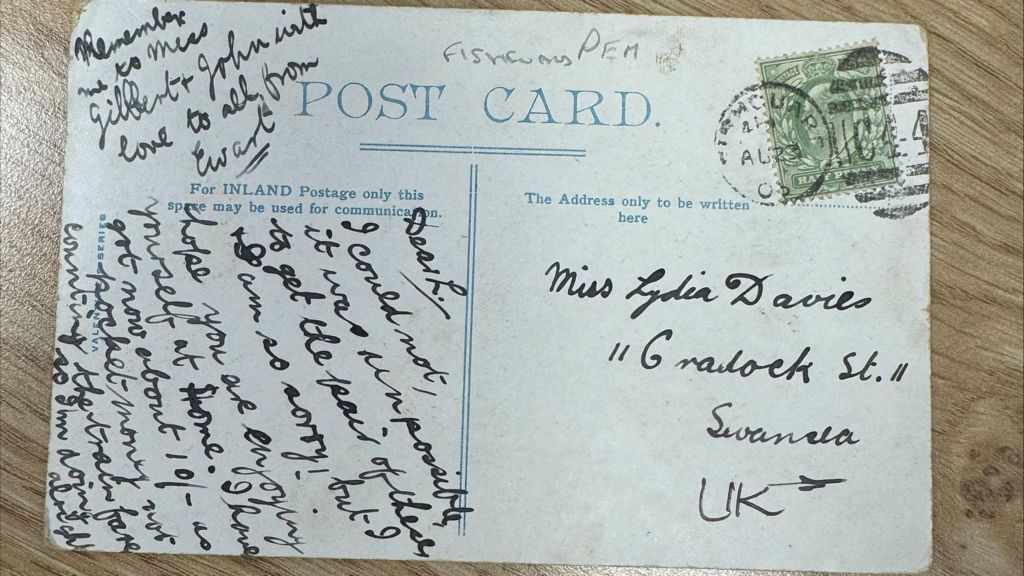 Remember
me to Miss
Gilbert + John with
love to all from
Ewart
PEM
POST CARD.
For INLAND Postage only this
space may be used for communication.
The Address only to be written
here
VALENTINE'S SERIES
Dear L.
I could not,
it was unpossible,
to get the pair of these
+ I am so sorry! but I
hope you are enjoying
yourself at home. I have
got now about 10/- as
pocket-money not
counting the train fare
so I'm doing alright
Miss Lydia Davies
11 Cradock St. 11
Swansea
UK
AU